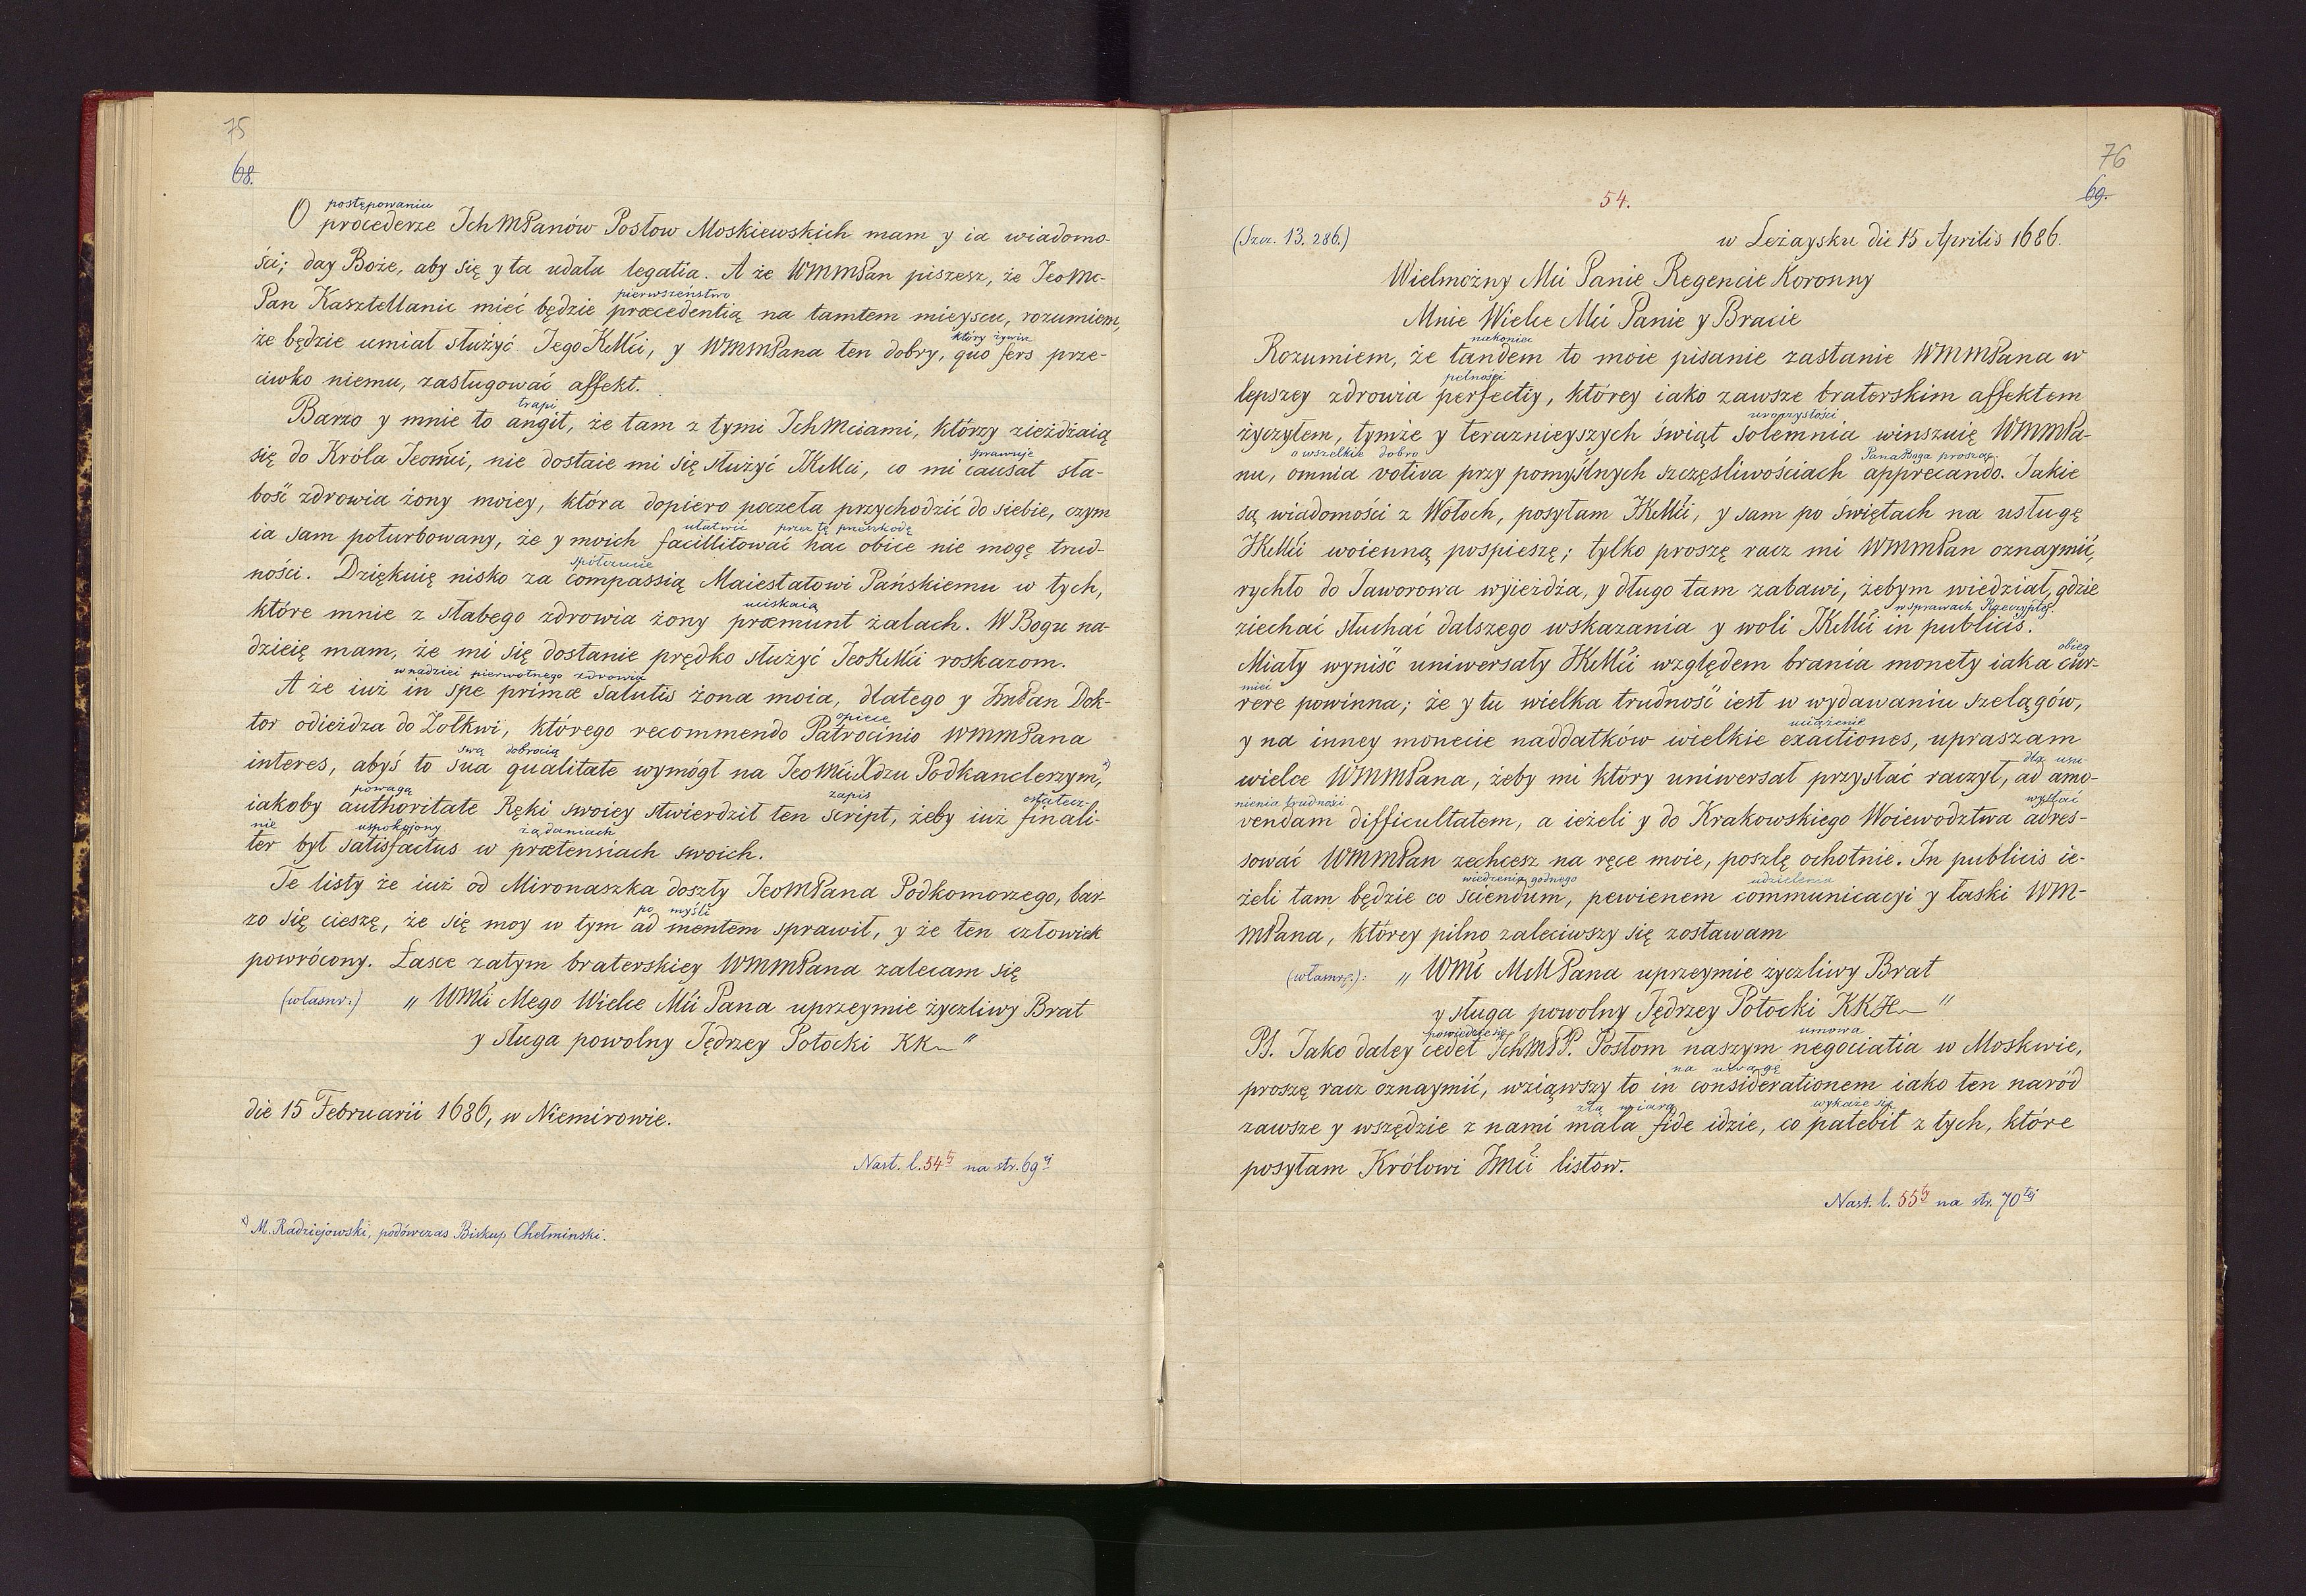 75
68.
postępowaniu
O procederze IchMPanów Posłow Moskiewskich mam y ia wiadomo-
ści; day Boże, aby się y ta udała legatia. A że WMMPan piszesz, że JeoMc-
pierwszeństwo
Pan Kasztellanic mieć będzie præcedentią na tamtem mieyscu, rozumiem,
który żywisz
że będzie umiał służyć JegoKMći, y WMMPana ten dobry, quo fers prze-
ciwko niemu, zasługować affekt.
trapi
Barzo y mnie to angit, że tam z tymi IchMciami, którzy zieżdżaią
sprawuje
się do Króla Jeomći, nie dostaie mi się służyć JKMci, co mi causat sła-
bość zdrowia żony moiey, która dopiero poczeła przychodzić do siebie, czym
ułatwić przez tę przeszkodę
ia sam poturbowany, że y moich facillitować hac obice nie mogę trud-
spółczucie
ności. Dziękuię nisko za compassią Maiestatowi Pańskiemu w tych,
uciskaią
które mnie z słabego zdrowia żony præmunt żalach. W Bogu na-
dzieię mam, że mi się dostanie prędko służyć JeoKMći roskazom.
w nadziei pierwotnego zdrowia
A że iuż in spe primæ salutis żona moia, dlatego y JmPan Dok-
opiece
tor odieżdza do Żołkwi, którego recommendo Patrocinio WMMPana
swą dobrocią
interes, abyś to sua qualitate wymógł na JeoMći Xdzu Podkanclerzym, x)
powagą zapis ostatecz-
iakoby authoritate Ręki swoiey stwierdził ten script, żeby iuż finali-
nie uspokojony żądaniach
ter był satisfactus w prætensiach swoich.
Te listy że iuż od Mironaszka doszły JeoMPana Podkomorzego, bar-
po myśli
zo się cieszę, że się moy w tym ad mentem sprawił, y że ten człowiek
powrócony. Łasce zatym braterskiey WMMPana zalecam się
(własnr:) „WMći Mego Wielce Mći Pana uprzeymie życzliwy Brat
y sługa powolny Jędrzey Potocki KK"
die 15 Februarii 1686, w Niemirowie.
Nast. l. 54ty na str. 69ej
x) M. Radziejowski, podówczas Biskup Chełminski.
76
69.
54.
(Szcz. 13. 286.) w Leżaysku die 15 Aprilis 1686.
Wielmożny Mći Panie Regencie Koronny
Mnie Wielce Mći Panie y Bracie
nakoniec
Rozumiem, że tandem to moie pisanie zastanie WMMPana w
pełności
lepszey zdrowia perfectiy, którey iako zawsze braterskim affektem
uroczystości
życzyłem, tymże y teraznieyszych świąt solemnia winszuię WMMPa-
o wszelkie dobro Pana Boga prosząc
nu, omnia votiva przy pomyślnych szczęsliwościach apprecando. Jakie
są wiadomości z Wołoch, posyłam JKMći, y sam po świętach na usługę
JKMći woienną pospieszę; tylko proszę racz mi WMMPan oznaymić,
rychło do Jaworowa wyieżdźa, y długo tam zabawi, żebym wiedział, gdzie
w sprawach Rzeczyplej.
ziechać słuchać dalszego wskazania y woli JKMći in publicis.
obieg
Miały wyniść uniwersały JKMći względem brania monety iaka cur-
mieć
rere powinna; że y tu wielka trudność iest w wydawaniu szelągów,
uciążenie
y na inney monecie naddatków wielkie exactiones, upraszam
dla usu-
wielce WMMPana, żeby mi który uniwersał przysłać raczył, ad amo-
nienia trudności wysłać
vendam difficultatem, a ieżeli y do Krakowskiego Woiewodztwa adres-
sować WMMPan zechcesz na ręce moie, poszlę ochotnie. In publicis ie-
wiedzenia godnego udzielenia
żeli tam będzie co sciendum, pewienem communicacyi y łaski WM-
MPana, którey pilno zaleciwszy się zostawam
(własnrę.): „WMći MMPana uprzeymie życzliwy Brat
y sługa powolny Jędrzey Potocki KKH"
powiedzie się umowa
PS. Jako daley cedet IchMPP. Posłom naszym negociatia w Moskwie,
na uwagę
proszę racz oznaymić, wziąwszy to in considerationem iako ten naród
złą wiarą wykaże się
zawsze y wszędzie z nami mala fide idzie, co patebit z tych, które
posyłam Królowi Jmći listów.
Nast. l. 55ty na str. 70tej